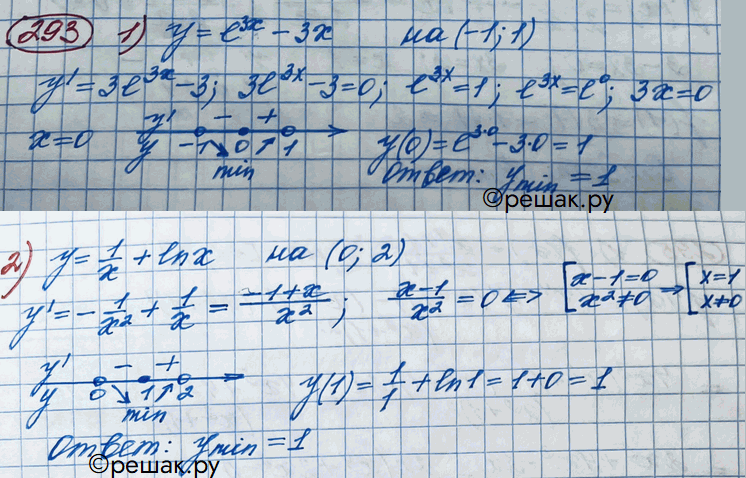 293 1) y = e^{3x} - 3x на (-1; 1)
y' = 3e^{3x} - 3; 3e^{3x} - 3 = 0; e^{3x} = 1; e^{3x} = e^0; 3x = 0
x = 0 y' - +
y -1 ↘ 0 ↗ 1 y(0) = e^{3·0} - 3·0 = 1
min Ответ: y_{min} = 1
©решак.ру
2) y = 1/x + ln x на (0; 2)
y' = -1/x² + 1/x = (-1+x)/x²; (x-1)/x² = 0 <=> [x-1=0 x²≠0 => [x=1 x≠0
y' - +
y 0 ↘ 1 ↗ 2 y(1) = 1/1 + ln1 = 1+0 = 1
min
Ответ: y_{min} = 1
©решак.ру